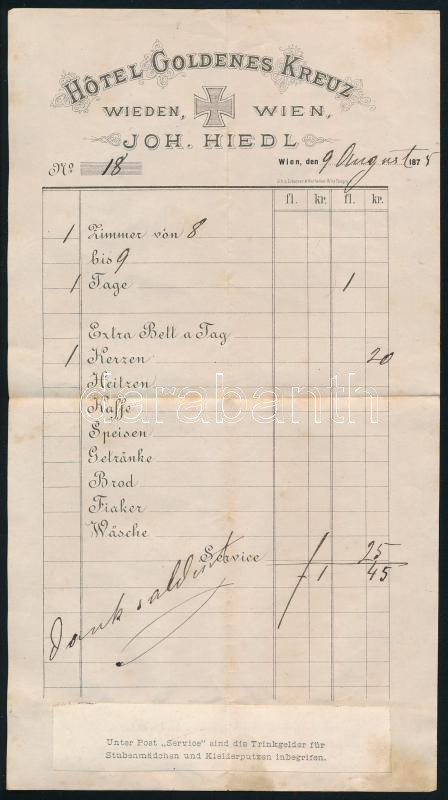 HÔTEL GOLDENES KREUZ
WIEDEN, WIEN,
JOH. HIEDL
No 18 Wien, den 9 August 1878
fl. kr. fl. kr.
1 Zimmer von 8
bis 9
1 Tage 1
Extra Bett a Tag
1 Kerzen 20
Heitzen
Kaffe
darabanth
Speisen
Getränke
Brod
Fiaker
Wäsche
Service 25
1 45
Dank
Unter Post „Service" sind die Trinkgelder für
Stubenmädchen und Kleiderputzen inbegrifen.